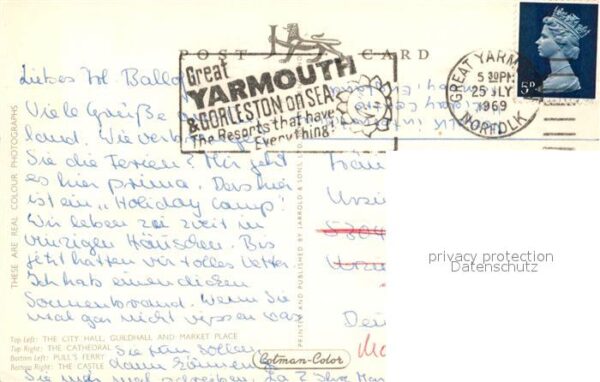 POST CARD
Great
YARMOUTH
& GORLESTON ON SEA
The Resorts that have
Everything!
GREAT YARM
5 30PM
25 JLY
1969
NORFOLK
5D
Liebes Frl Ballo
Viele Grüße
land. Wie verbr
Sie die Ferien? Mir geht
es hier prima. Das hier
ist ein „Holiday Camp"
Wir leben zu zweit in
winzigen Häuschen. Bis
jetzt hatten wir tolles Wetter.
Ich hab einen dicken
Sonnenbrand. Wenn Sie
mal gar nicht wissen was
Sie tun sollen
dann können
Sie mir mal schreiben.
Fräu
Ursu
THESE ARE REAL COLOUR PHOTOGRAPHS
PRINTED AND PUBLISHED BY JARROLD & SONS LTD
privacy protection
Datenschutz
Top Left: THE CITY HALL, GUILDHALL AND MARKET PLACE
Top Right: THE CATHEDRAL
Bottom Left: PULL'S FERRY
Bottom Right: THE CASTLE
Cotman-Color